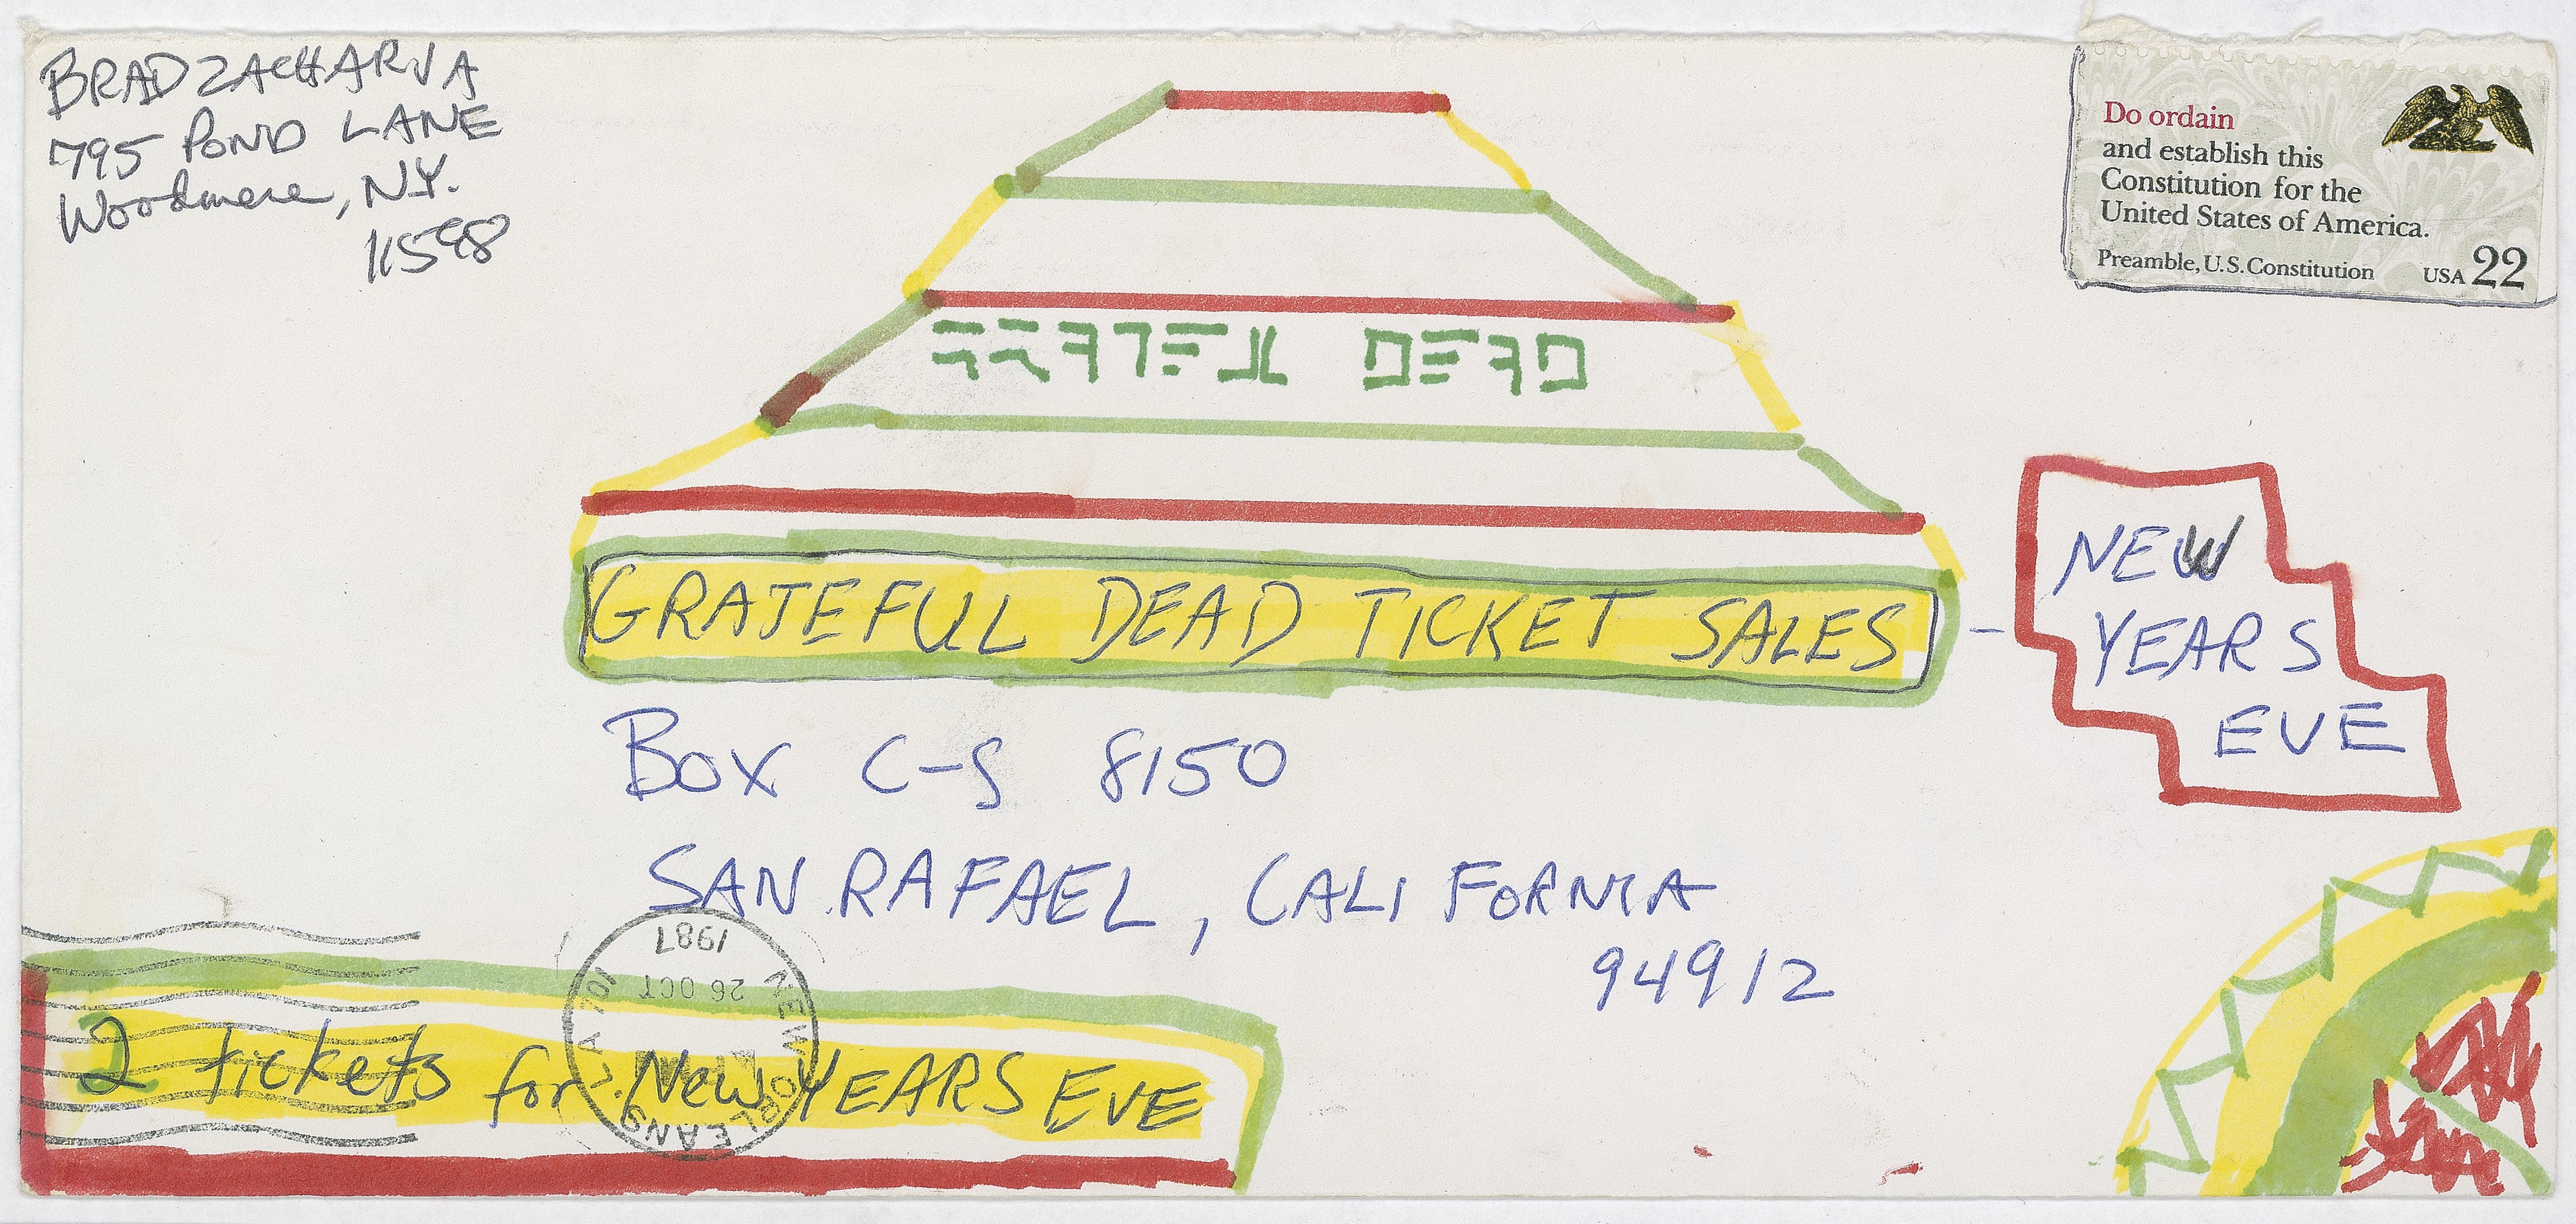 BRAD ZACHARIA
795 POND LANE
Woodmere, N.Y.
11598
Do ordain
and establish this
Constitution for the
United States of America.
Preamble, U.S. Constitution USA 22
GRATEFUL DEAD TICKET SALES -
NEW
YEARS
EVE
BOX C-S 8150
SAN RAFAEL, CALIFORNIA
94912
1987
26 OCT
NEW ORLEANS LA 701
2 tickets for New YEARS EVE